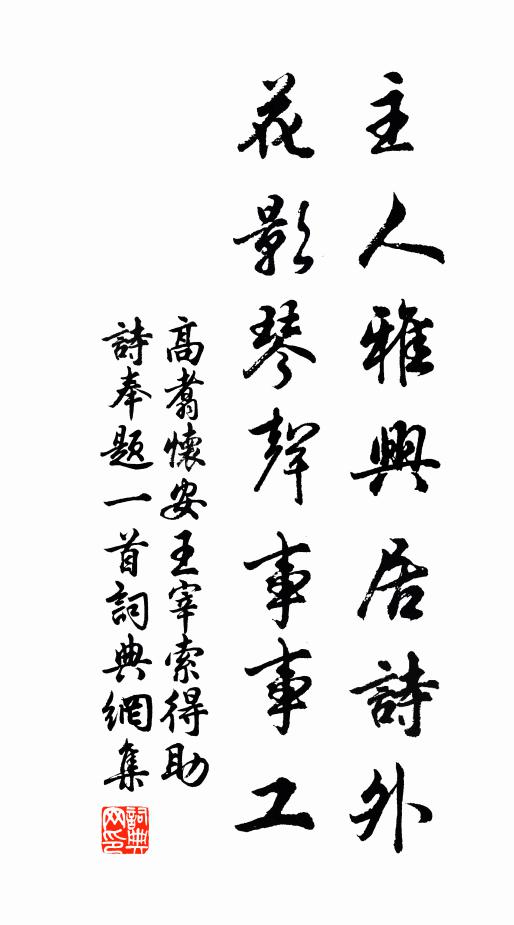 主人雅興居詩外
花影琴聲事事工
高翥懷安王宰索得助
詩奉题一首詞典網集
詞典网印